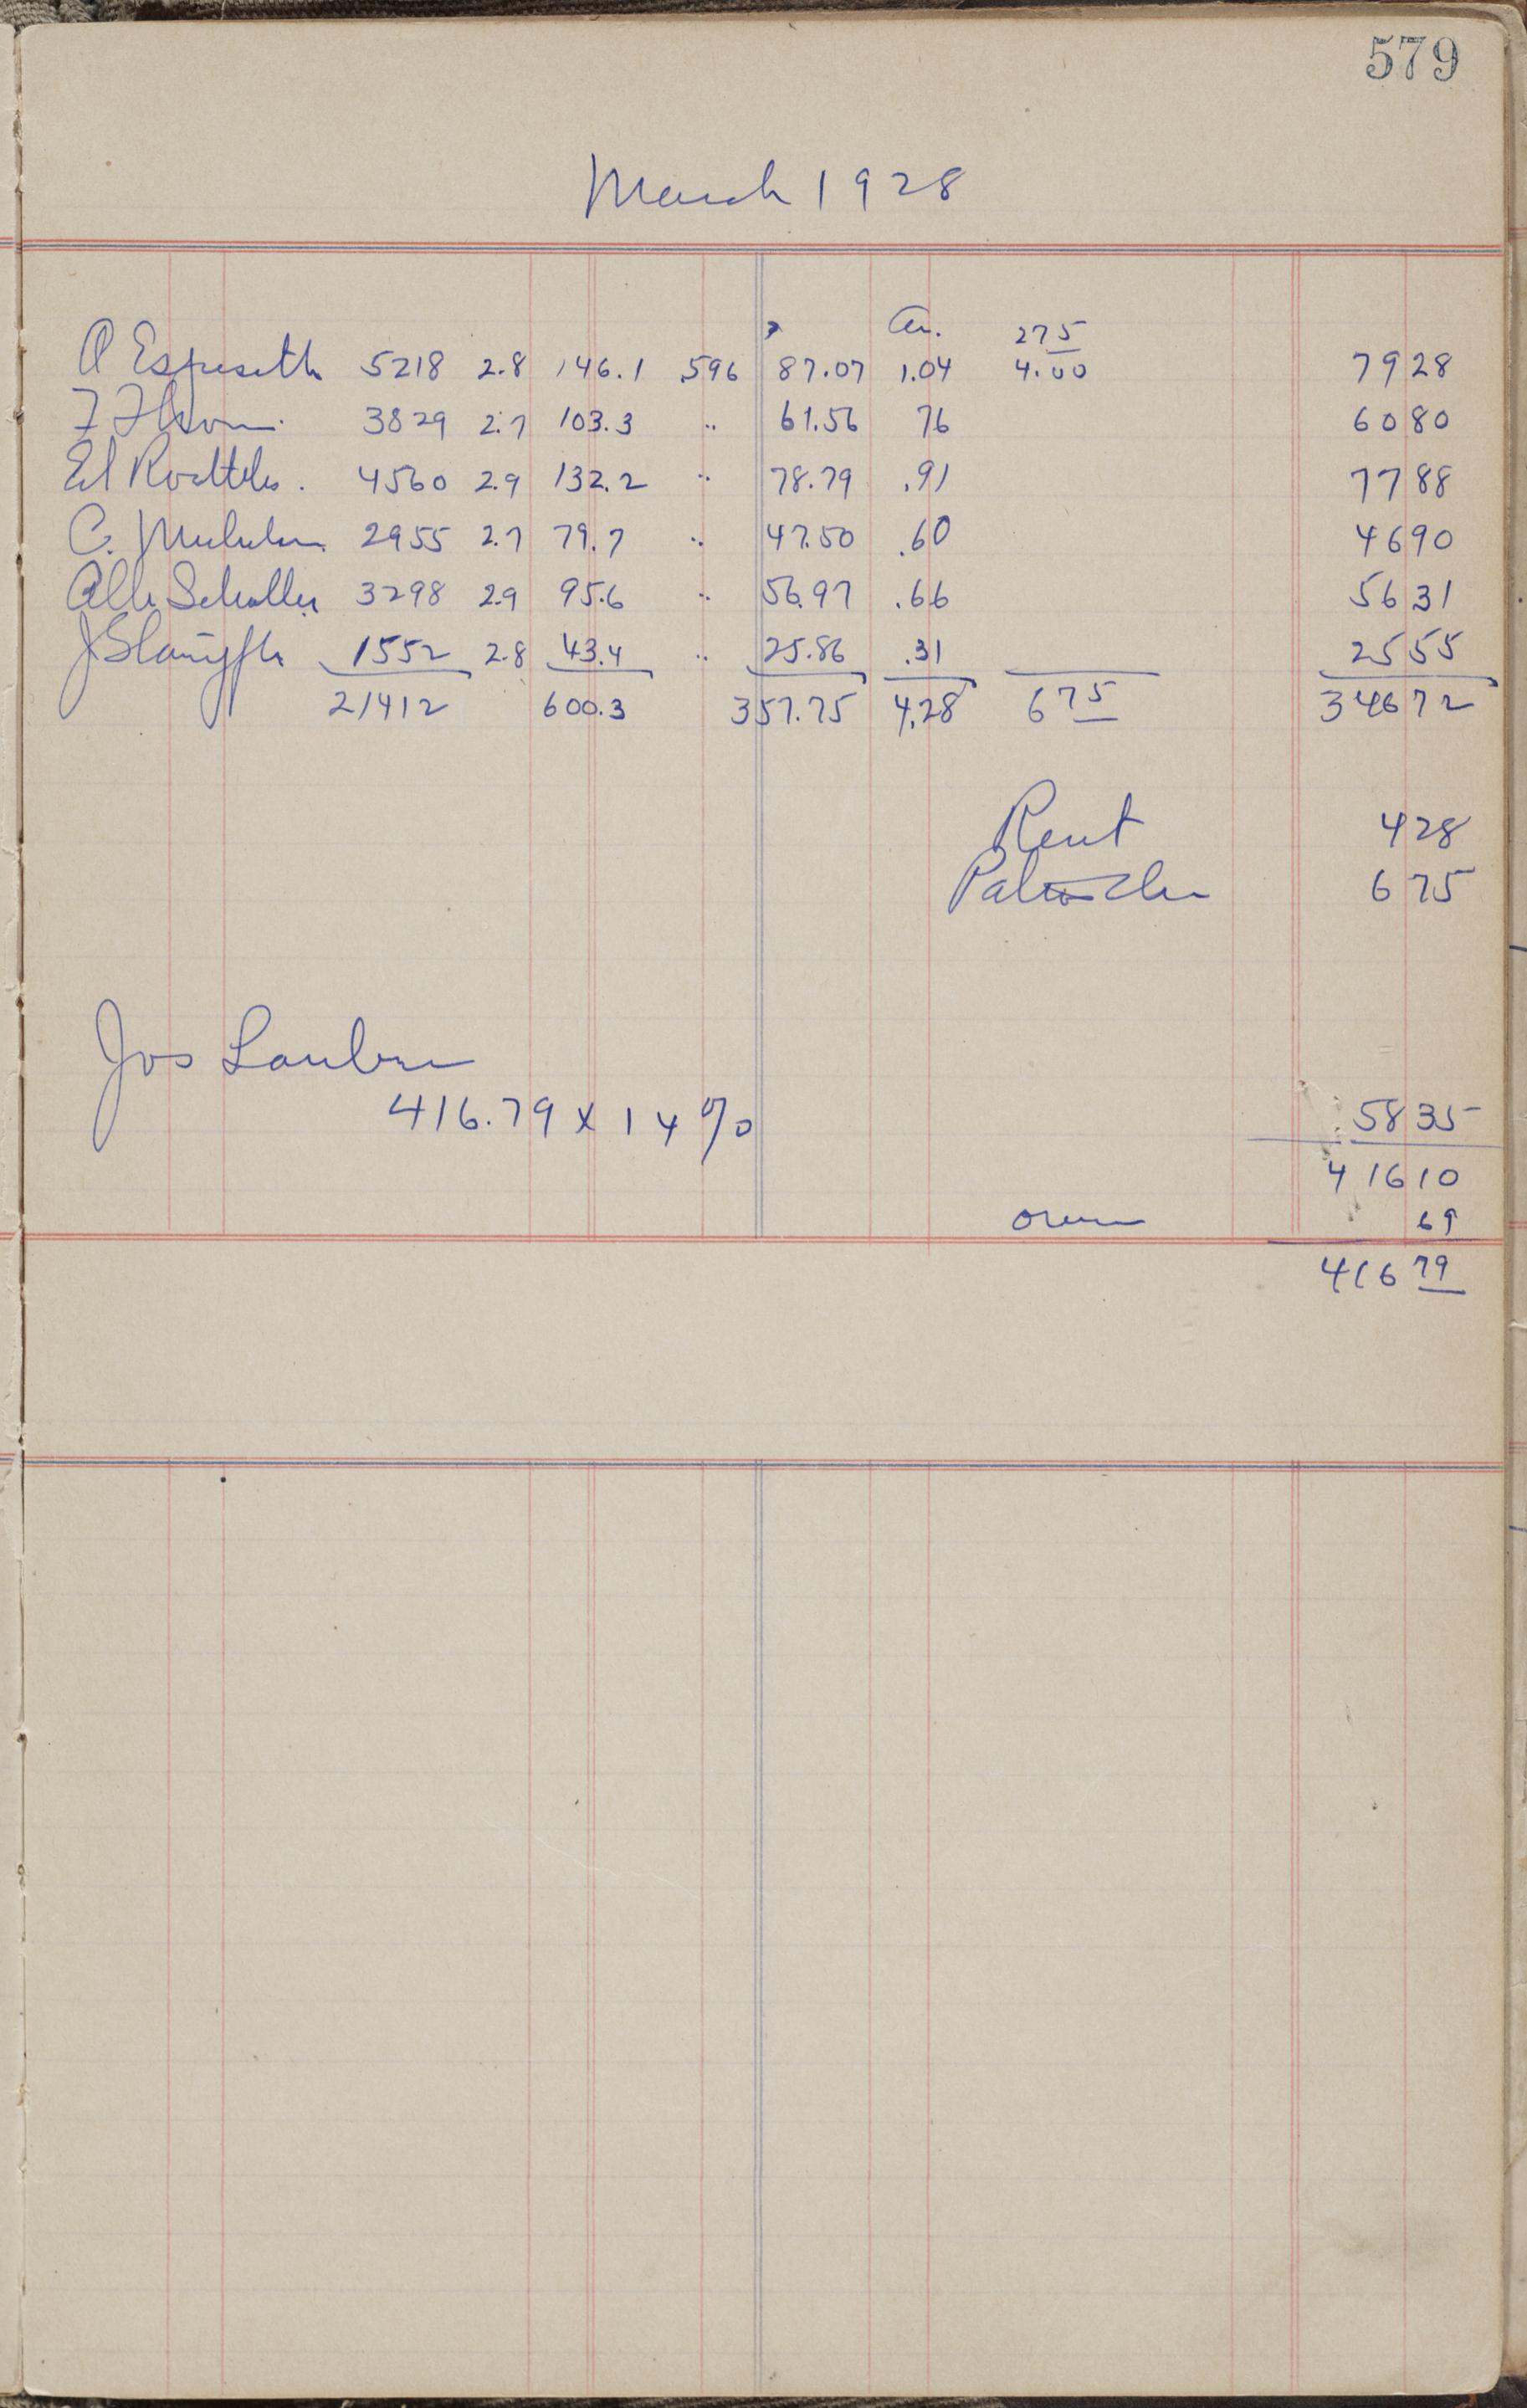 579
March 1928
Cr. 275
O Espeseth 5218 2.8 146.1 596 87.07 1.04 4.00 7928
F Olson. 3829 2.7 103.3 " 61.56 76 6080
Ed 4560 2.9 132.2 " 78.79 .91 7788
C. 2955 2.7 79.7 " 47.50 .60 4690
Alb Schaller 3298 2.9 95.6 " 56.97 .66 5631
J 1552 2.8 43.4 " 25.86 .31 2555
21412 600.3 357.75 4.28 675 34672
Rent 428
675
Jos
416.79 x 14% 5835
41610
over 69
416 79